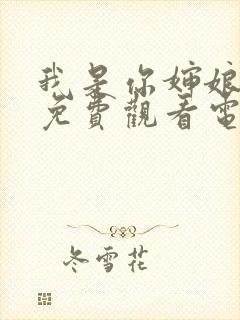 我是你婶娘
免費觀看電
冬雪花